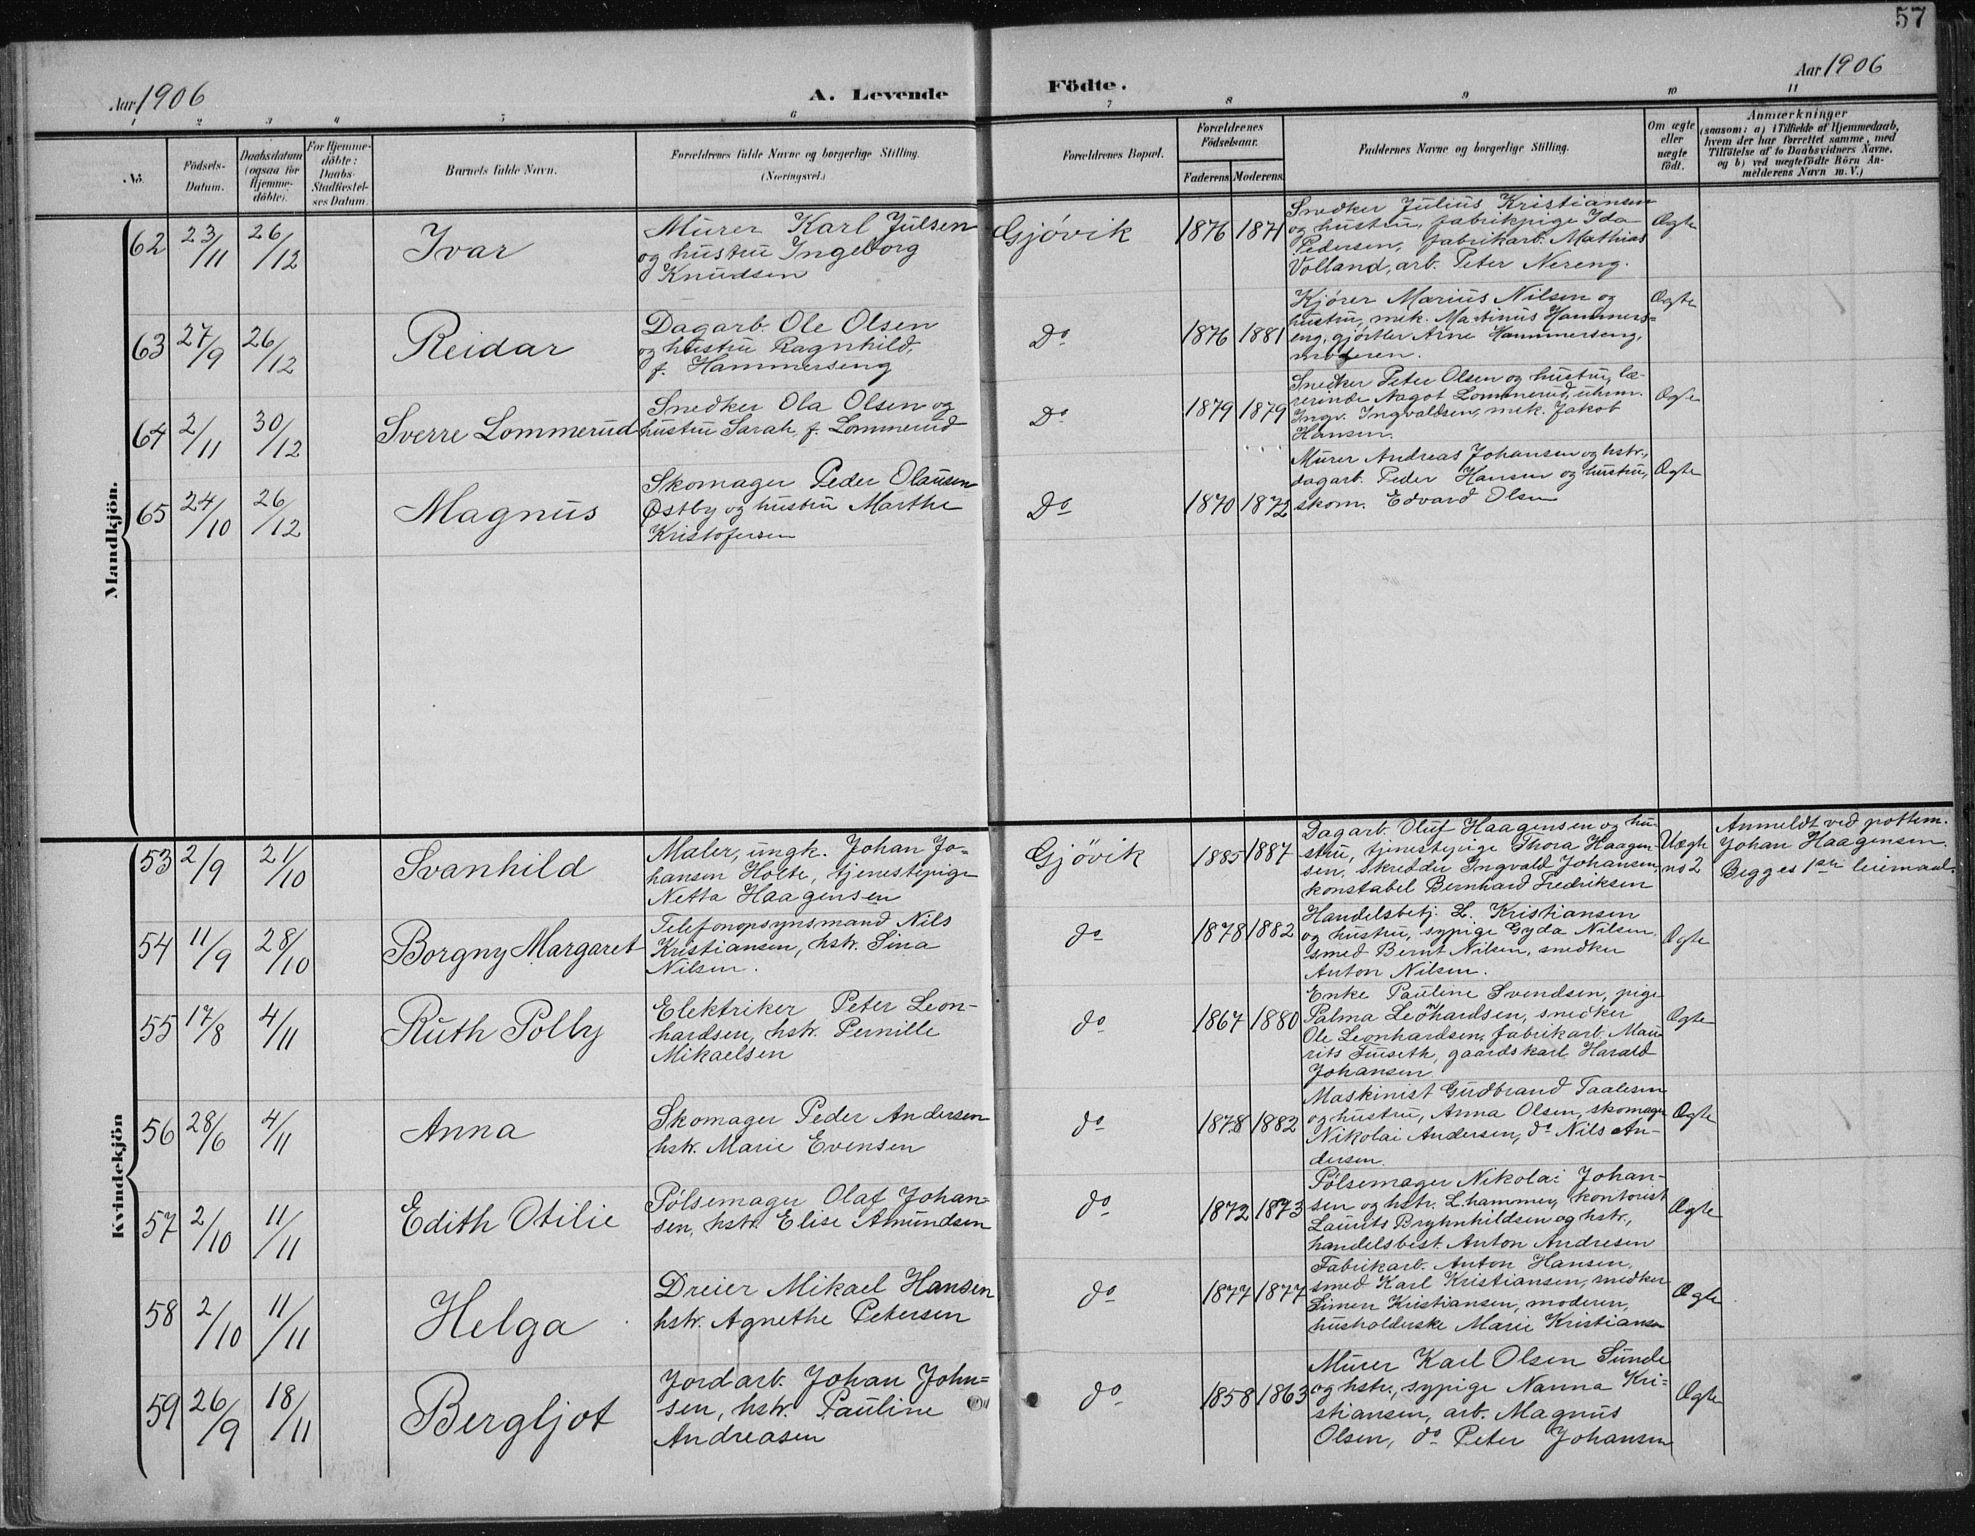 57
Aar 1906
A. Levende
Födte.
Aar 1906
1 2 3 4 5 6 7 8 9 10 11
No.
Födsels-
Datum.
Daabsdatum
(ogsaa for
Hjemme-
döbte).
For Hjemme-
döbte:
Daabs-
Stadfæstel-
ses Datum.
Barnets fulde Navn.
Forældrenes fulde Navne og borgerlige Stilling.
(Næringsvei.)
Forældrenes Bopæl.
Forældrenes
Födselsaar.
Faderens. Moderens.
Faddernes Navne og borgerlige Stilling.
Om ægte
eller
uægte
födt.
Anmærkninger
(saasom: a) i Tilfælde af Hjemmedaab,
hvem der har forrettet samme, med
Tilföielse af to Daabsvidners Navne,
og b) ved uægtefödte Börn An-
melderens Navn m. V.)
Mandkjön.
62 23/11 26/12 Ivar
Murer Karl Julsen
og hustru Ingeborg
Knudsen
Gjøvik 1876 1871
Snedker Julius Kristiansen
og hustru, fabrikpige Ida
Pedersen, fabrikarb. Mathias
Volland, arb. Peter Nereng.
Ægte
63 27/9 26/12 Reidar
Dagarb. Ole Olsen
og hustru Ragnhild,
f. Hammerseng
Do 1876 1881
Kjører Marius Nilsen og
hustru, mek. Martinus Hammers=
eng, gjørtler Arne Hammerseng,
moderen.
Ægte
64 2/11 30/12 Sverre Lommerud
Snedker Ola Olsen og
hustru Sarah, f. Lommerud
Do 1879 1879
Snedker Peter Olsen og hustru, læ-
rerinde Aagot Lommerud, uhrm.
Ingv. Ingvaldsen, mek. Jakob
Hansen.
Ægte
65 24/10 26/12 Magnus
Skomager Peder Olausen
Østby og hustru Marthe
Kristofersen
Do 1870 1872
Murer Andreas Johansen og hstr.,
dagarb. Peder Hansen og hustru,
skom. Edvard Olsen
Ægte
Kvindekjön
53 2/9 21/10 Svanhild
Maler, ungk. Johan Jo-
hansen Holte, tjenestepige
Netta Haagensen
Gjövik 1885 1887
Dagarb. Oluf Haagensen og hu-
stru, tjenestepige Thora Haagen-
sen, skrædder Ingvald Johansen,
konstabel Bernhard Fredriksen
Uægte
no 2
Anmeldt ved pottem.
Johan Haagensen.
Begges 1ste leiemaal.
54 11/9 28/10 Borgny Margaret
Telefonopsynsmand Nils
Kristiansen, hstr. Sina
Nilsen.
do 1878 1882
Handelsbetj. L. Kristiansen
og hustru, sypige Gyda Nilsen,
smed Bernt Nilsen, snedker
Anton Nilsen.
Ægte
55 17/8 4/11 Ruth Polly
Elektriker Peter Leon-
hardsen, hstr. Pernille
Mikaelsen
do 1867 1880
Enke Pauline Svendsen, pige
Palma Leonhardsen, snedker
Ole Leonhardsen, fabrikarb. Mau-
rits Tuseth, gaardskarl Harald
Johansen.
Ægte
56 28/6 4/11 Anna
Skomager Peder Andersen
hstr. Marie Evensen
do 1878 1882
Maskinist Gudbrand Taalesen
og hustru, Anna Olsen, skomager
Nikolai Andersen, do Nils An-
dersen.
Ægte
57 2/10 11/11 Edith Otilie
Pølsemager Olaf Johan-
sen, hstr. Elise Amundsen
do 1872 1873
Pølsemager Nikolai Johan-
sen og hstr. L.hammer, kontorist
Laurits Brynhildsen og hstr.,
handelsbest. Anton Andresen
Ægte
58 2/10 11/11 Helga
Dreier Mikael Hansen
hstr. Agnethe Petersen
do 1877 1877
Fabrikarb. Anton Hansen,
smed Karl Kristiansen, snedker
Simen Kristiansen, moderen,
husholderske Marie Kristiansen
Ægte
59 26/9 18/11 Bergljot
Jordarb. Johan John=
sen, hstr. Pauline
Andreasen
do 1858 1863
Murer Karl Olsen Sunde
og hstr., sypige Nanna Kri=
stiansen, arb. Magnus
Olsen, do Peter Johansen
Ægte